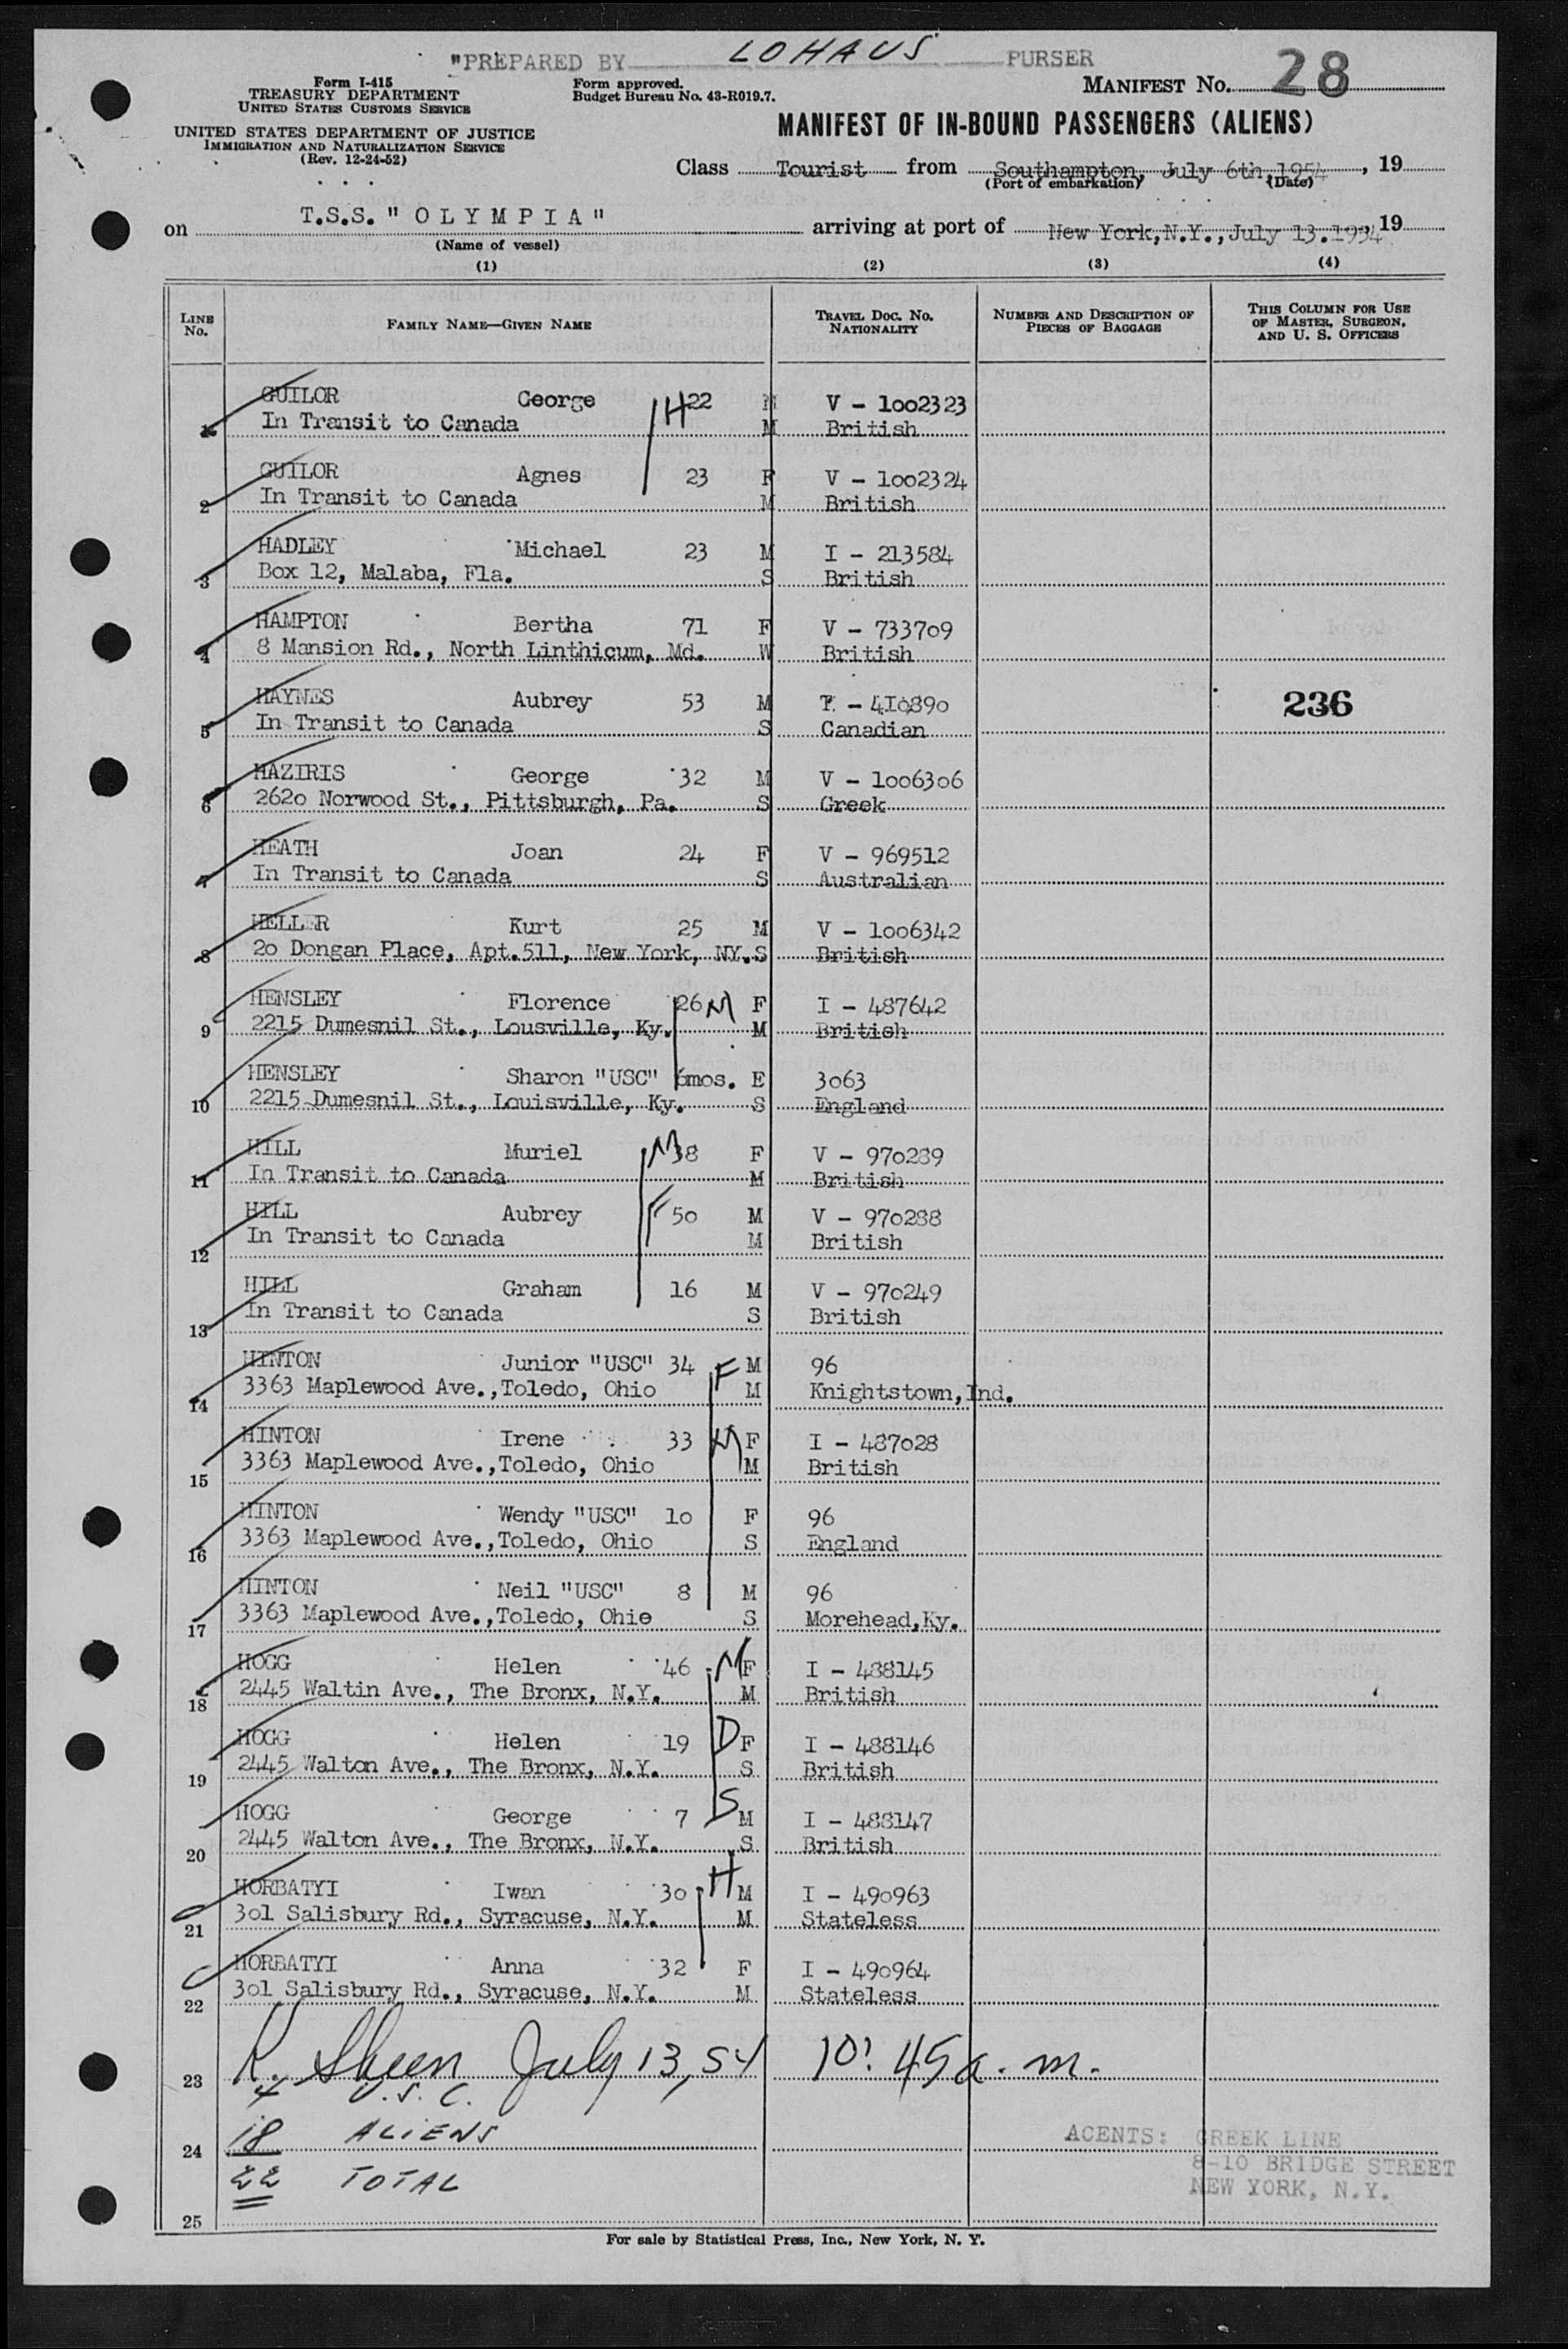 "PREPARED BY LOHAUS PURSER
Form I-415
TREASURY DEPARTMENT
UNITED STATES CUSTOMS SERVICE
UNITED STATES DEPARTMENT OF JUSTICE
IMMIGRATION AND NATURALIZATION SERVICE
(Rev. 12-24-52)
Form approved.
Budget Bureau No. 43-R019.7.
MANIFEST NO. 28
MANIFEST OF IN-BOUND PASSENGERS (ALIENS)
Class Tourist from Southampton, July 6th, 1954, 19
(Port of embarkation) (Date)
on T.S.S. " O L Y M P I A " arriving at port of New York, N.Y., July 13. 1954, 19
(Name of vessel)
(1) (2) (3) (4)
LINE NO. FAMILY NAME—GIVEN NAME TRAVEL DOC. NO. NATIONALITY NUMBER AND DESCRIPTION OF PIECES OF BAGGAGE THIS COLUMN FOR USE OF MASTER, SURGEON, AND U. S. OFFICERS
GUILOR George H 22 M V - 1002323
1 In Transit to Canada M British
GUILOR Agnes 23 F V - 1002324
2 In Transit to Canada M British
HADLEY Michael 23 M I - 213584
3 Box 12, Malaba, Fla. S British
HAMPTON Bertha 71 F V - 733709
4 8 Mansion Rd., North Linthicum, Md. W British
HAYNES Aubrey 53 M - 410890 236
5 In Transit to Canada S Canadian
HAZIRIS George 32 M V - 1006306
6 2620 Norwood St., Pittsburgh, Pa. S Greek
HEATH Joan 24 F V - 969512
7 In Transit to Canada S Australian
HELLER Kurt 25 M V - 1006342
8 20 Dongan Place, Apt.511, New York, NY. S British
HENSLEY Florence 26 M F I - 487642
9 2215 Dumesnil St., Lousville, Ky. M British
HENSLEY Sharon "USC" 6mos. F 3063
10 2215 Dumesnil St., Louisville, Ky. S England
HILL Muriel M 38 F V - 970289
11 In Transit to Canada M British
HILL Aubrey F 50 M V - 970288
12 In Transit to Canada M British
HILL Graham 16 M V - 970249
13 In Transit to Canada S British
HINTON Junior "USC" 34 F M 96
14 3363 Maplewood Ave.,Toledo, Ohio M Knightstown,Ind.
HINTON Irene 33 M F I - 487028
15 3363 Maplewood Ave.,Toledo, Ohio M British
HINTON Wendy "USC" 10 F 96
16 3363 Maplewood Ave.,Toledo, Ohio S England
HINTON Neil "USC" 8 M 96
17 3363 Maplewood Ave.,Toledo, Ohie S Morehead,Ky.
HOGG Helen 46 M F I - 488145
18 2445 Waltin Ave., The Bronx, N.Y. M British
HOGG Helen 19 D F I - 488146
19 2445 Walton Ave., The Bronx, N.Y. S British
HOGG George 7 S M I - 488147
20 2445 Walton Ave., The Bronx, N.Y. S British
HORBATYI Iwan 30 H M I - 490963
21 301 Salisbury Rd., Syracuse, N.Y. M Stateless
HORBATYI Anna 32 F I - 490964
22 301 Salisbury Rd., Syracuse, N.Y. M Stateless
23 K. Sheen July 13, 54 10:45 a.m.
4 U.S.C.
24 18 ALIENS
22 TOTAL
25
AGENTS: GREEK LINE
8-10 BRIDGE STREET
NEW YORK, N.Y.
For sale by Statistical Press, Inc., New York, N. Y.